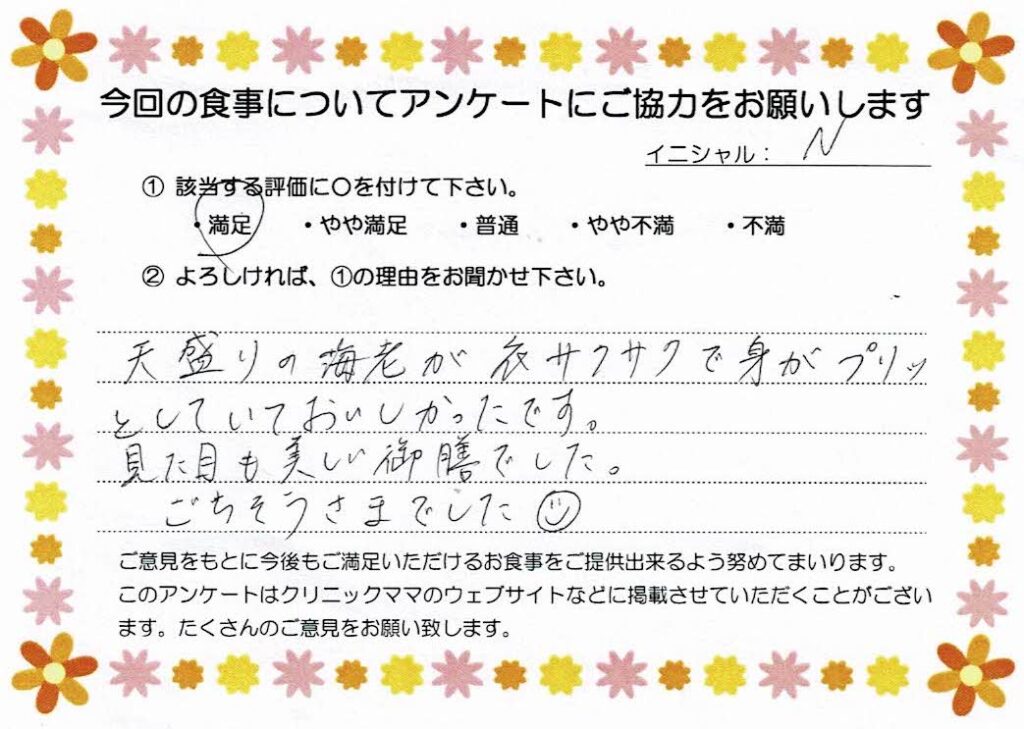 今回の食事についてアンケートにご協力をお願いします
イニシャル： N
① 該当する評価に〇を付けて下さい。
・満足 ・やや満足 ・普通 ・やや不満 ・不満
② よろしければ、①の理由をお聞かせ下さい。
天盛りの海老が衣サクサクで身がプリッ
としていておいしかったです。
見た目も美しい御膳でした。
ごちそうさまでした
ご意見をもとに今後もご満足いただけるお食事をご提供出来るよう努めてまいります。
このアンケートはクリニックママのウェブサイトなどに掲載させていただくことがござい
ます。たくさんのご意見をお願い致します。